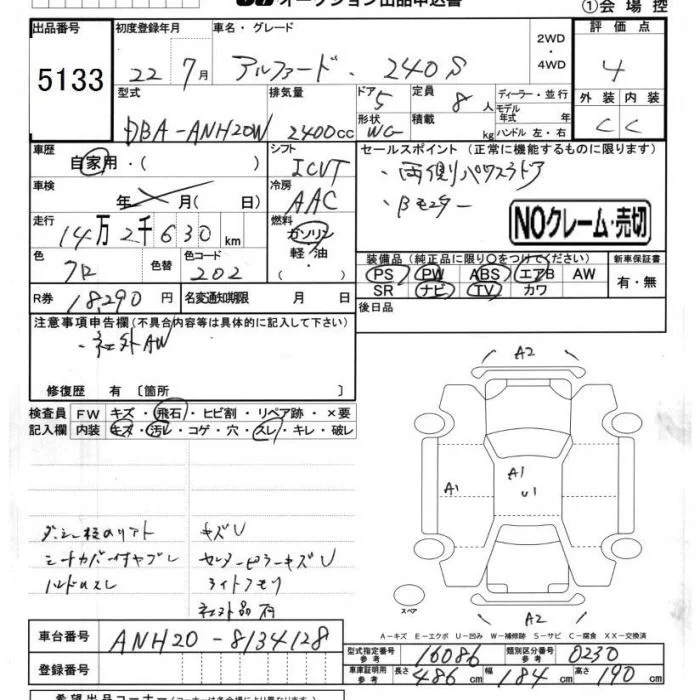 オークション出品申込書
①会場控
出品番号 初度登録年月 車名・グレード 2WD ・ 4WD 評価点
5133 22 7月 アルファード・240S 4
型式 排気量 ドア 5 定員 8人 ディーラー・並行 外装 内装
DBA-ANH20W 2400cc 形状 WG 積載 kg モデル年式 年 ハンドル 左・右 C C
車歴 自家用・( ) シフト ICVT セールスポイント(正常に機能するものに限ります)
・両側パワスラドア
車検 年 月(日) 冷房 AAC ・Bモニター
走行 14万2千630km 燃料 ガソリン 軽油 NOクレーム・売切
色 クロ 色替 色コード 202 装備品(純正品に限り○をつけてください) 新車保証書
PS PW ABS エアB AW 有・無
R券 18,290円 名変通知期限 月 日 SR ナビ TV カワ
後日品
注意事項申告欄(不具合内容等は具体的に記入して下さい)
・社外AW
修復歴 有〔箇所 〕
検査員 FW キズ・飛石・ヒビ割・リペア跡・×要
記入欄 内装 キズ・汚レ・コゲ・穴・スレ・キレ・破レ
A2
A1 A1
U1
キズU
シートカバー付ヤブレ センターピラーキズU
ハンドルスレ ライトクモリ
社外品有
スペア
A2
A-キズ E-エクボ U-凹み W-補修跡 S-サビ C-腐食 XX-交換済
車台番号 ANH20-8134128
型式指定番号 参考 16086 類別区分番号 参考 0230
登録番号 車庫証明用 参考 長さ 486cm 幅 184cm 高さ 190cm
希望出品コーナー(コーナー名は各会場により異なります)